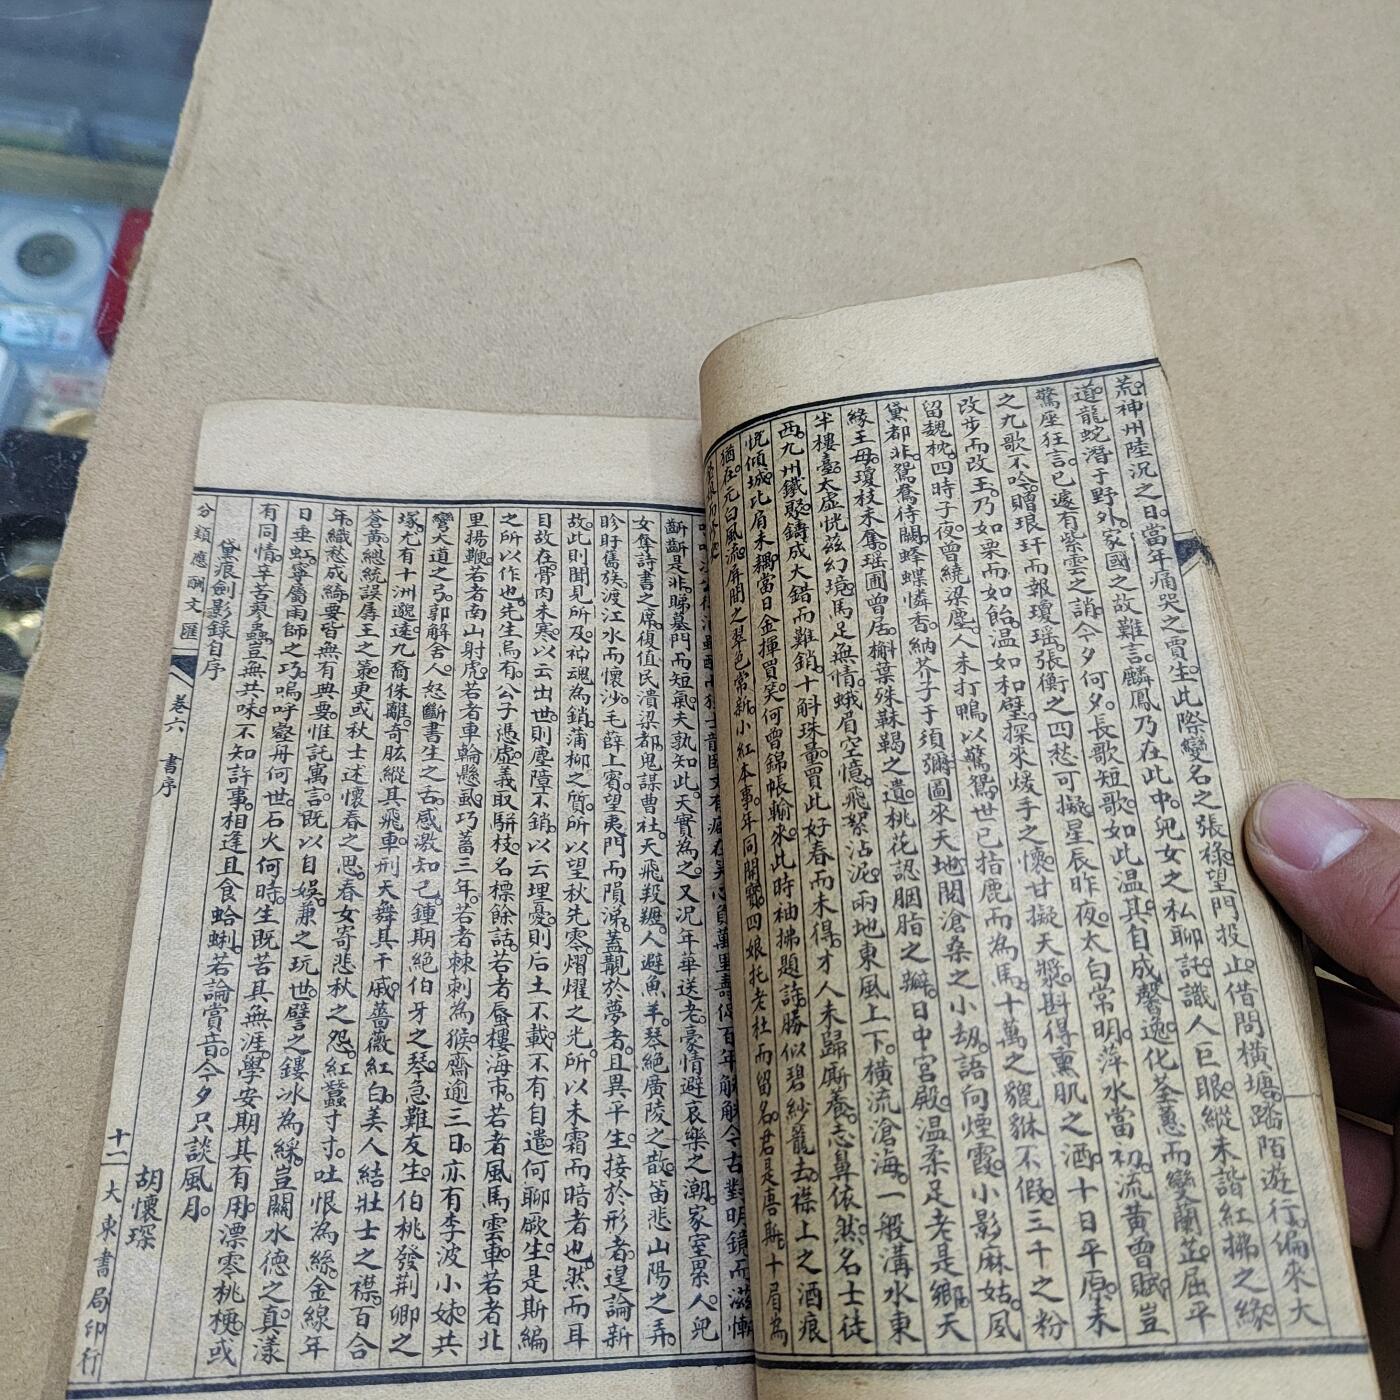 荒。神州陸況之日。當年痛哭之賈生。此際變名之張祿。望門投止。借問橫塘。踏陌遊行。偏來大
道。龍蛇潛于野外。家國之故難言。麟鳳乃在此中。兒女之私聊託。識人巨眼。縱未諧紅拂之緣。
驚座狂言。已遽有紫雲之誚。今夕何夕。長歌短歌。如此温其。自成馨逸。化荃蕙而變蘭芷。屈平
之九歌不吟。贈琅玕而報瓊瑤。張衡之四愁可擬。星辰昨夜。太白常明。萍水當初。流黃曾賦。豈
改步而改王。乃如栗而如飴。温如和璧。探來煖手之懷。甘擬天漿。斟得熏肌之酒。十日平原。未
留魏枕。四時子夜。曾繞梁塵。人未打鴨以驚鴛。世已指鹿而為馬。十萬之貔貅不假。三千之粉
黛都非。鴛鴦待闕。蜂蝶憐香。納芥子于須彌。圖來天地。閱滄桑之小劫。語向煙霞。小影麻姑。風
緣王母。瓊枝未奪。瑶圃曾居。槲葉殊靺鞨之遺。桃花認胭脂之瓣。日中宮殿。温柔足老是鄉。天
半樓臺。太虛恍茲幻境。馬足無情。蛾眉空憶。飛絮沾泥。兩地東風上下。橫流滄海。一般溝水東
西。九州鐵聚。鑄成大錯而難銷。十斛珠量。買此好春而未得。才人未歸厮養。志鼻依然。名士徒
慨傾城。比肩未耦。當日金揮買笑。何曾錦帳輸來。此時袖拂題詩。勝似碧紗籠去。襟上之酒痕
猶在。元白風流。屏間之翠色常新。小紅本事。年同開寶。四娘托老杜而留名。君是唐斯。十眉為
百年解解。今古對明鏡而滋慚
齗齗是非。睇墓門而短氣。夫孰知此。天實為之。又況年華送老。豪情避哀樂之潮。家室累人。兒
女奪詩書之席。復值民潰梁都。鬼謀曹社。天飛羖䍽。人避魚羊。琴絕廣陵之散。笛悲山陽之弄。
眕盱舊族。渡江水而懷沙。毛薛上賓。望夷門而隕涕。蓋覯於夢者。且異平生。接於形者。遑論新
故。此則聞見所及。神魂為銷。蒲柳之質。所以望秋先零。熠燿之光。所以未霜而暗者也。然而耳
目故在。骨肉未寒。以云出世。則塵障不銷。以云埋憂。則后土不載。不有自遣。何聊厥生。是斯編
之所以作也。先生烏有。公子憑虛。義取駢枝。名標餘話。若者蜃樓海市。若者風馬雲車。若者北
里揚鞭。若者南山射虎。若者車輪懸虱。巧蓄三年。若者棘刺為猴。齋逾三日。亦有李波小妹。共
彎大道之弓。郭解舍人。怒斷書生之舌。感激知己。鍾期絕伯牙之琴。急難友生。伯桃發荆卿之
塚。尤有十洲邈遠。九裔侏離。奇肱縱其飛車。刑天舞其干戚。薔薇紅白。美人結壯士之襟。百合
蒼黃。總統誤孱王之箋。更或秋士述懷春之思。春女寄悲秋之怨。紅蠶寸寸。吐恨為絲。金線年
年。織愁成綺。要皆無有典要。惟託寓言。既以自娛。兼之玩世。譬之鏤冰為綵。豈關水德之真。漾
日垂虹。寧屬雨師之巧。嗚呼。壑舟何世。石火何時。生既苦其無涯。學安期其有用。漂零桃梗。或
有同情。辛苦蓼蟲。言無共味。不知許事。相逢且食蛤蜊。若論賞音。今夕只談風月。
黛痕劍影錄自序
胡懷琛
分類應酬文匯
卷六
書序
十二
大東書局印行